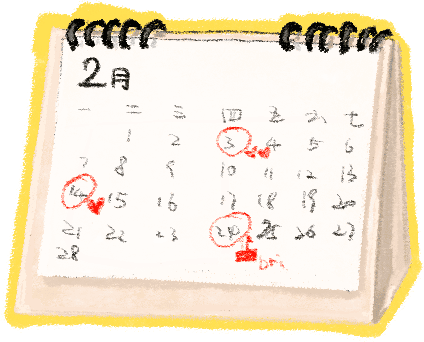 2月
一 二 三 四 五 六 七
1 2 3 4 5 6
7 8 9 10 11 12 13
14 15 16 17 18 19 20
21 22 23 24 25 26 27
28